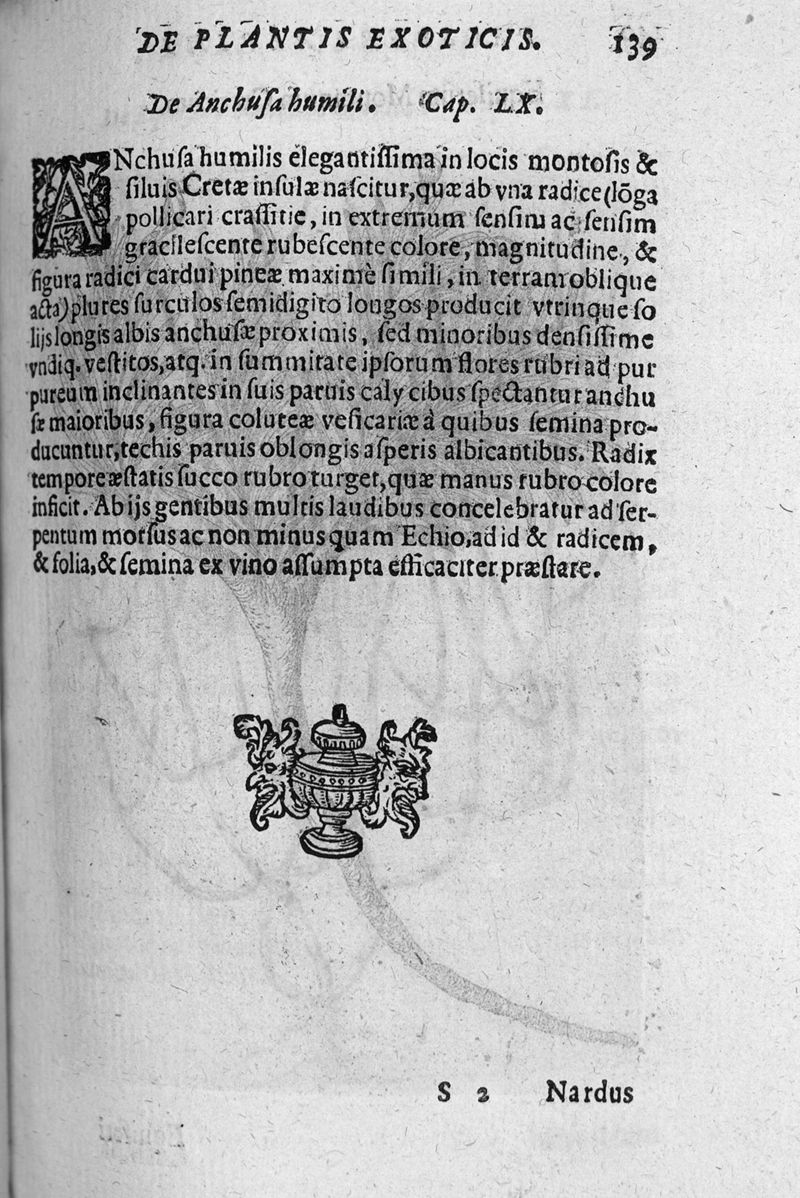 DE PLANTIS EXOTICIS. 139
De Anchuſa humili. Cap. LX.
ANchuſa humilis elegantiſſima in locis montoſis &
ſiluis Cretæ inſulæ naſcitur, quæ ab vna radice (lōga
pollicari craſſitie, in extremum ſenſim ac ſenſim
gracileſcente rubeſcente colore, magnitudine, &
figura radici cardui pineæ maximè ſimili, in terram oblique
acta) plures ſurculos ſemidigito longos producit vtrinque fo
lijs longis albis anchuſæ proximis, ſed minoribus denſiſſime
vndiq. veſtitos, atq. in ſummitate ipſorum flores rubri ad pur
pureum inclinantes in ſuis paruis calycibus ſpectantur anchu
ſæ maioribus, figura coluteæ veſicariæ à quibus ſemina pro-
ducuntur, techis paruis oblongis aſperis albicantibus. Radix
tempore æſtatis ſucco rubro turget, quæ manus rubro colore
inficit. Ab ijs gentibus multis laudibus concelebratur ad ſer-
pentum morſus ac non minus quam Echio, ad id & radicem,
& folia, & ſemina ex vino aſſumpta efficaciter præſtare.
S 2 Nardus